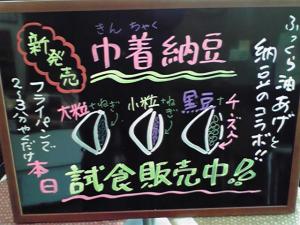 ふっくら油あげと
納豆のコラボ!!
きんちゃく
巾着納豆
新発売
大粒+ねぎ
小粒+ねぎ
黒豆
チーズ入り
フライパンで
2~3分やくだけ
本日
試食販売中!!